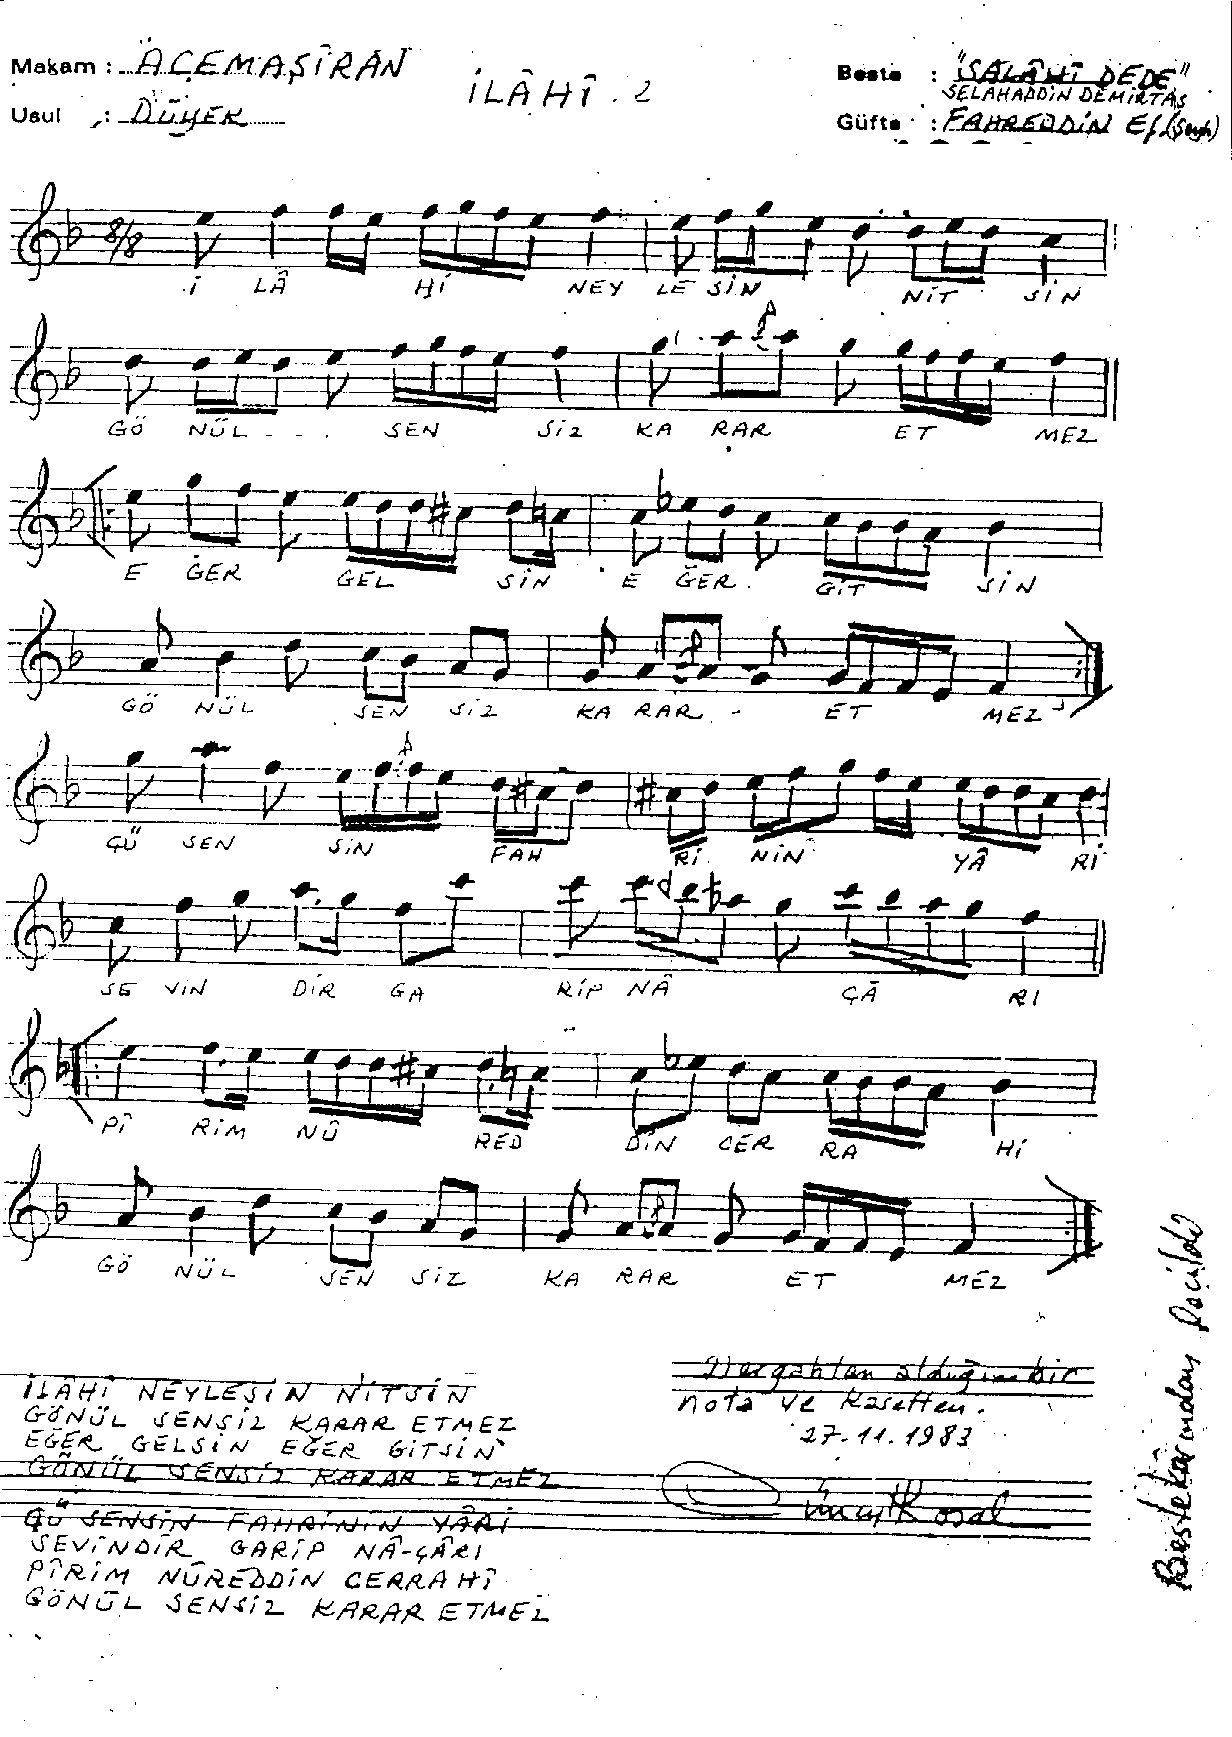 Makam : ACEMAŞÎRAN
İLÂHÎ . 2
Beste : "SALÂHÎ DEDE"
SELAHADDİN DEMİRTAŞ
Usul : DÜYEK
Güfte : FAHREDDİN Ef. (Şeyh)
8/8
İ LÂ Hİ NEY LE SİN NİT SİN
GÖ NÜL SEN SİZ KA RAR ET MEZ
E ĞER GEL SİN E ĞER GİT SİN
GÖ NÜL SEN SİZ KA RAR - ET MEZ
ÇÜ SEN SİN FAH Rİ NİN YÂ Rİ
SE VİN DİR GA RİP NÂ ÇÂ RI
PÎ RİM NÛ RED DİN CER RA Hİ
GÖ NÜL SEN SİZ KA RAR ET MEZ
İLÂHÎ NEYLESİN NİTSİN
GÖNÜL SENSİZ KARAR ETMEZ
EĞER GELSİN EĞER GİTSİN
GÖNÜL SENSİZ KARAR ETMEZ
ÇÜ SENSİN FAHRİNİN YÂRİ
SEVİNDİR GARİP NÂ-ÇÂRI
PÎRİM NÛREDDİN CERRAHÎ
GÖNÜL SENSİZ KARAR ETMEZ
Dergahtan aldığım bir
nota ve kasetten.
27.11.1983
Bestekârından